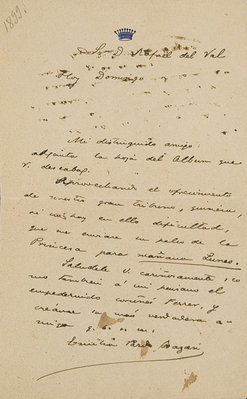 1899.
Sr. D. Rafael del Val
Hoy Domingo
Mi distinguido amigo:
adjunta la hoja del Album que
V. deseaba.
Aprovechando el ofrecimiento
de nuestro gran tribuno, quisiera,
si no hay en ello dificultad,
que me enviase un palco de la
Princesa para mañana Lunes.
Saludele V. cariñosamente, co
mo tambien á mi paisano el
empedernido Ferrer, y
creame su más verdadera a
miga q. b. s. m.
Emilia Pardo Bazán